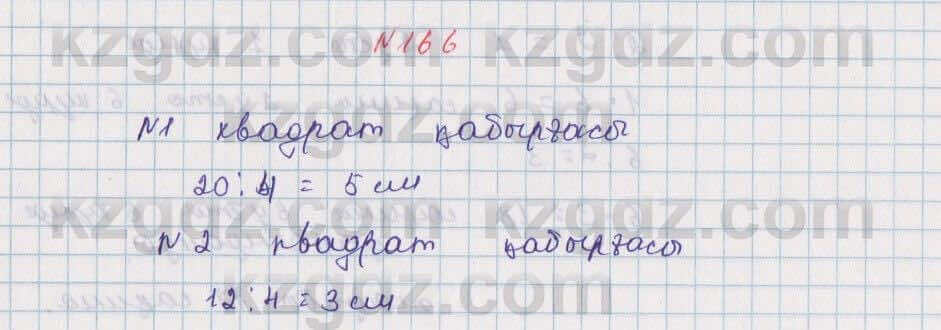 N166
N1 квадрат қабырғасы
20 : 4 = 5 см
N2 квадрат қабырғасы
12 : 4 = 3 см
kzgdz.com
kzgdz.com
kzgdz.com
kzgdz.com